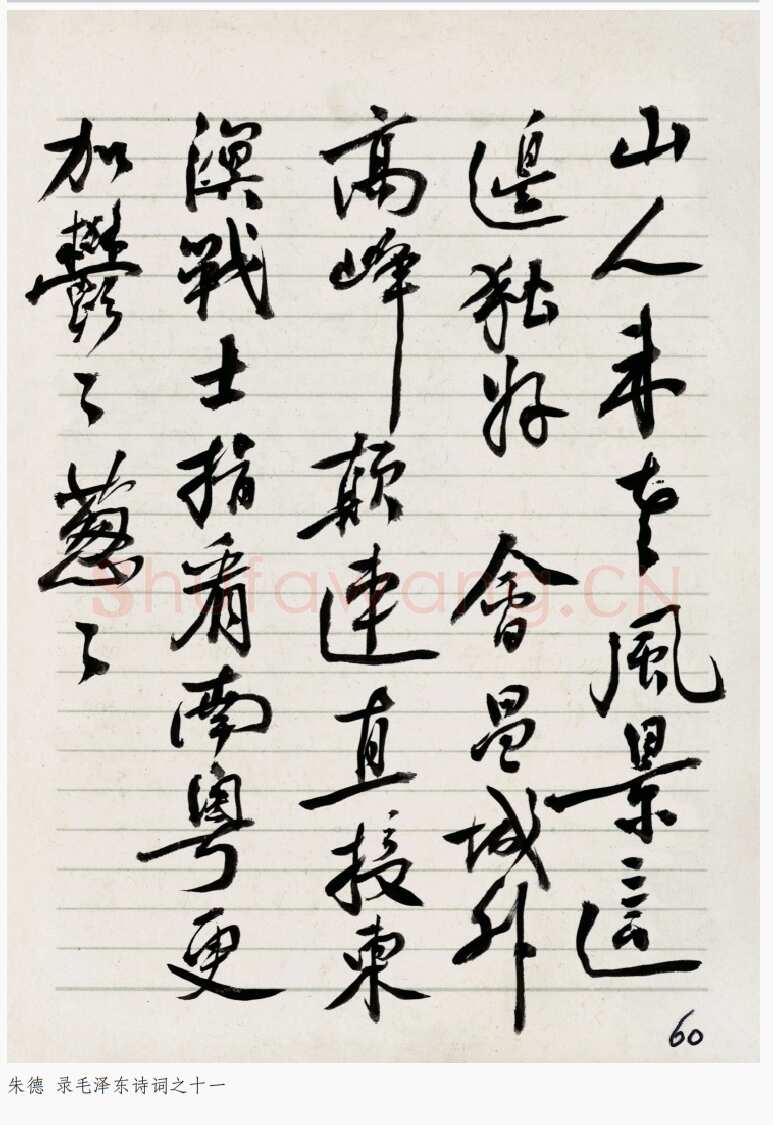 山人未老風景這
邊獨好會昌城外
高峰顛連直接東
溟戰士指看南粵更
加鬱々蔥々
60
Shufawang.CN
朱德 录毛泽东诗词之十一